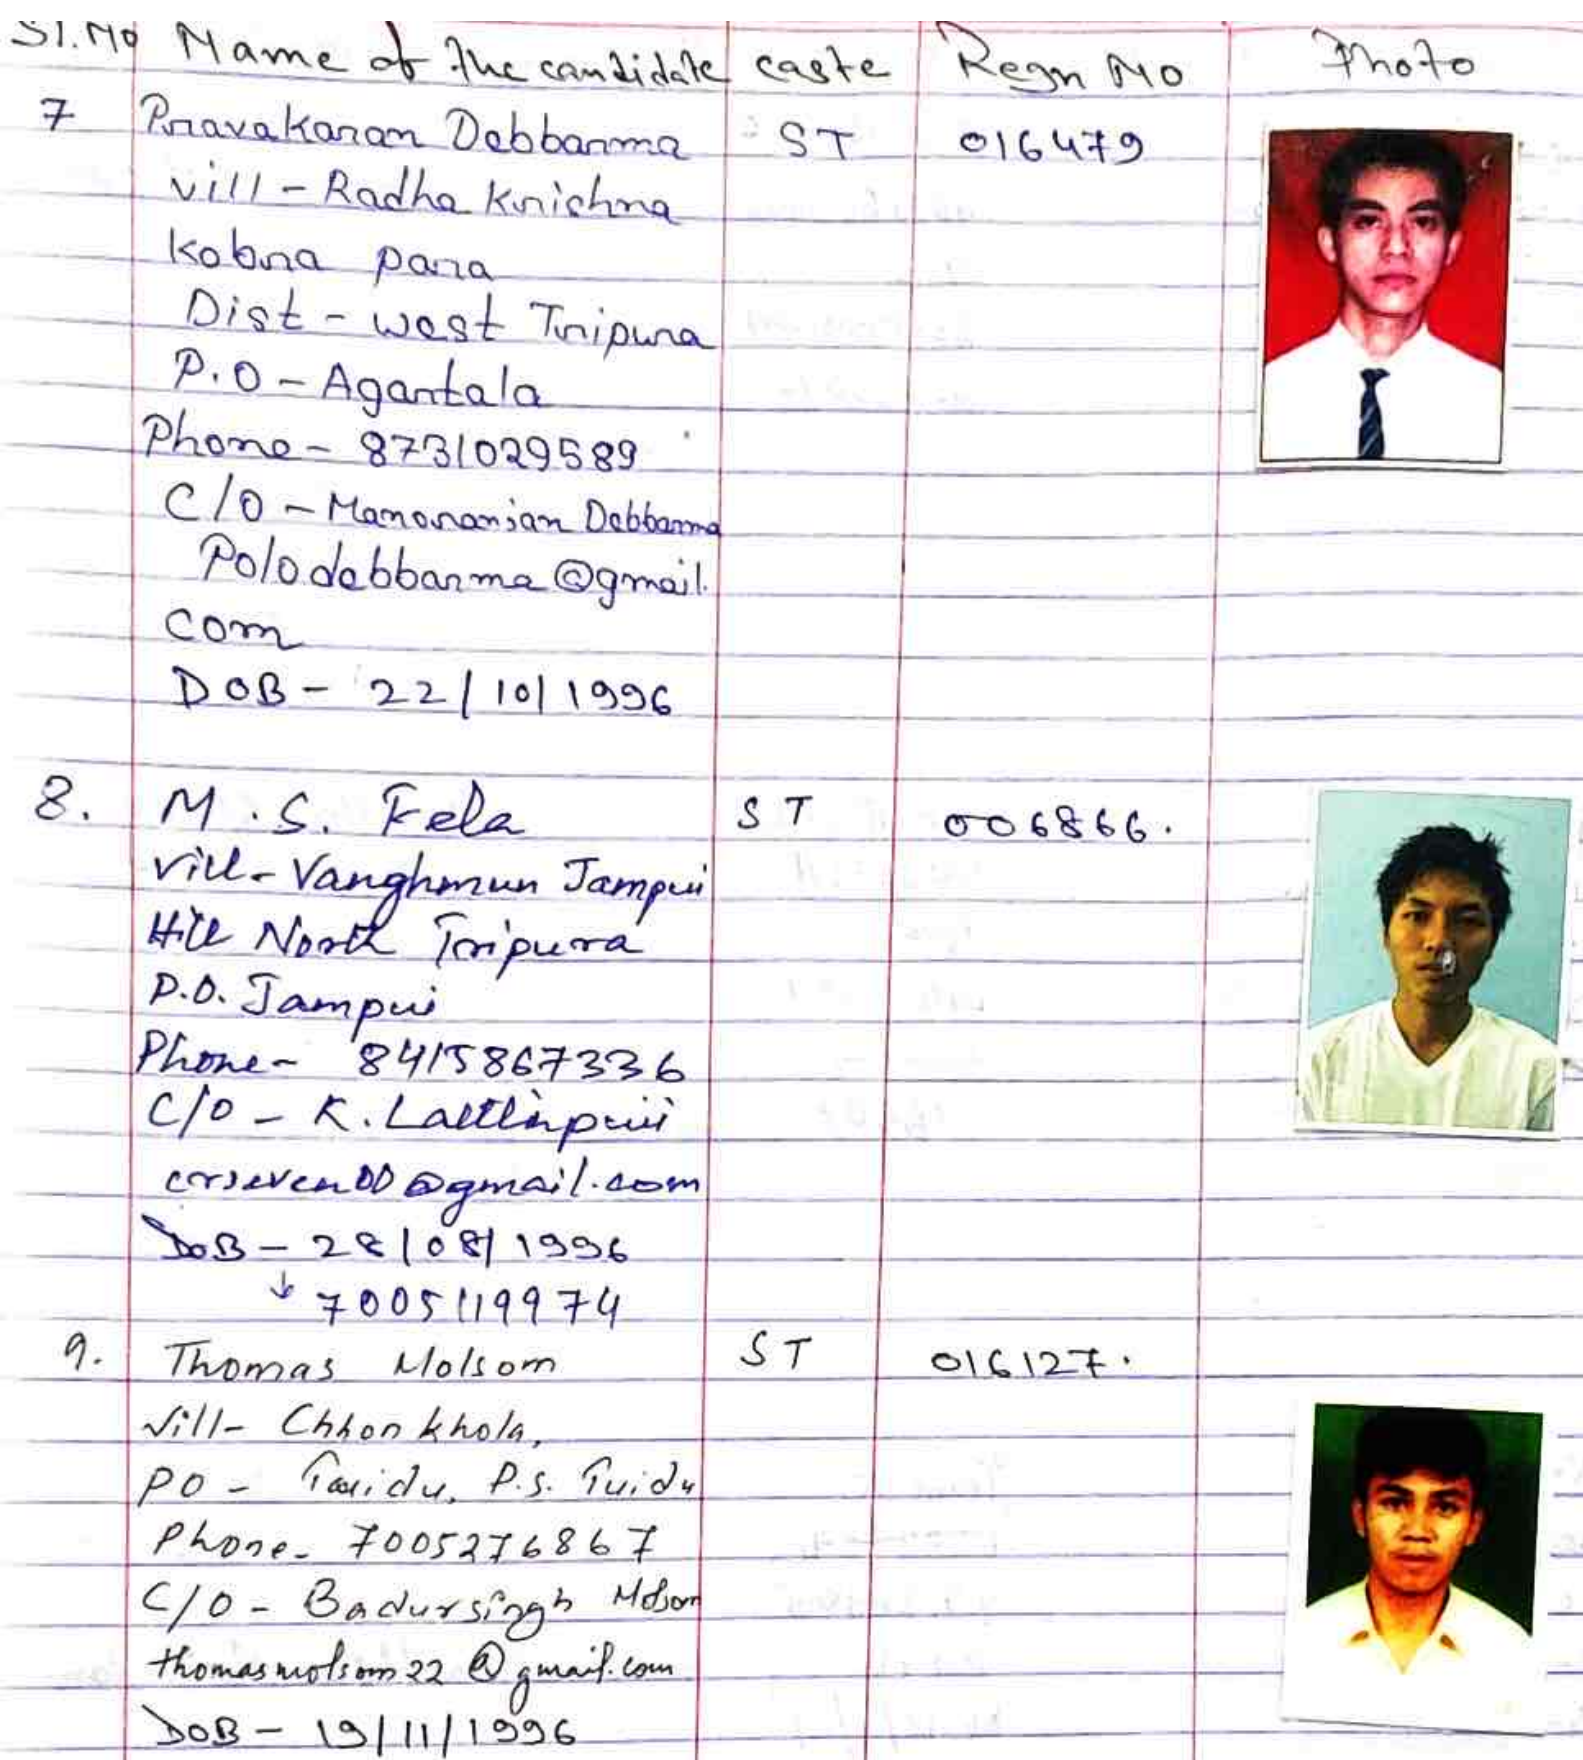 Sl.No Name of the candidate caste Regn No Photo
7 Pravakaran Debbarma ST 016479
vill - Radha Krishna
Kobra para
Dist - west Tripura
P.O - Agartala
Phone - 8731029589
C/O - Manoranjan Debbarma
Polodebbarma@gmail.
com
DOB - 22/10/1996
8. M.S. Fela ST 006866.
vill - Vanghmun Jampui
Hill North Tripura
P.O. Jampui
Phone - 8415867336
C/O - K. Laltlinpuii
crseven00@gmail.com
DOB - 28/08/1996
↓ 7005119974
9. Thomas Molsom ST 016127.
Vill- Chhonkhola,
PO - Tuidu, P.S. Tuidu
Phone- 7005276867
C/O - Badursingh Molsom
thomasmolsom22@gmail.com
DOB - 19/11/1996